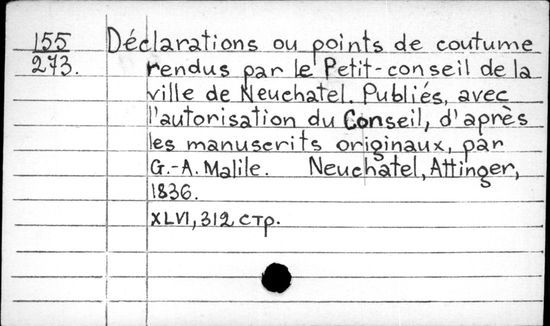 155 Déclarations ou points de coutume
273. rendus par le Petit-conseil de la
ville de Neuchatel. Publiés, avec
l'autorisation du Conseil, d'après
les manuscrits originaux, par
G.-A. Malile. Neuchatel, Attinger,
1836.
XLVI, 312 стр.